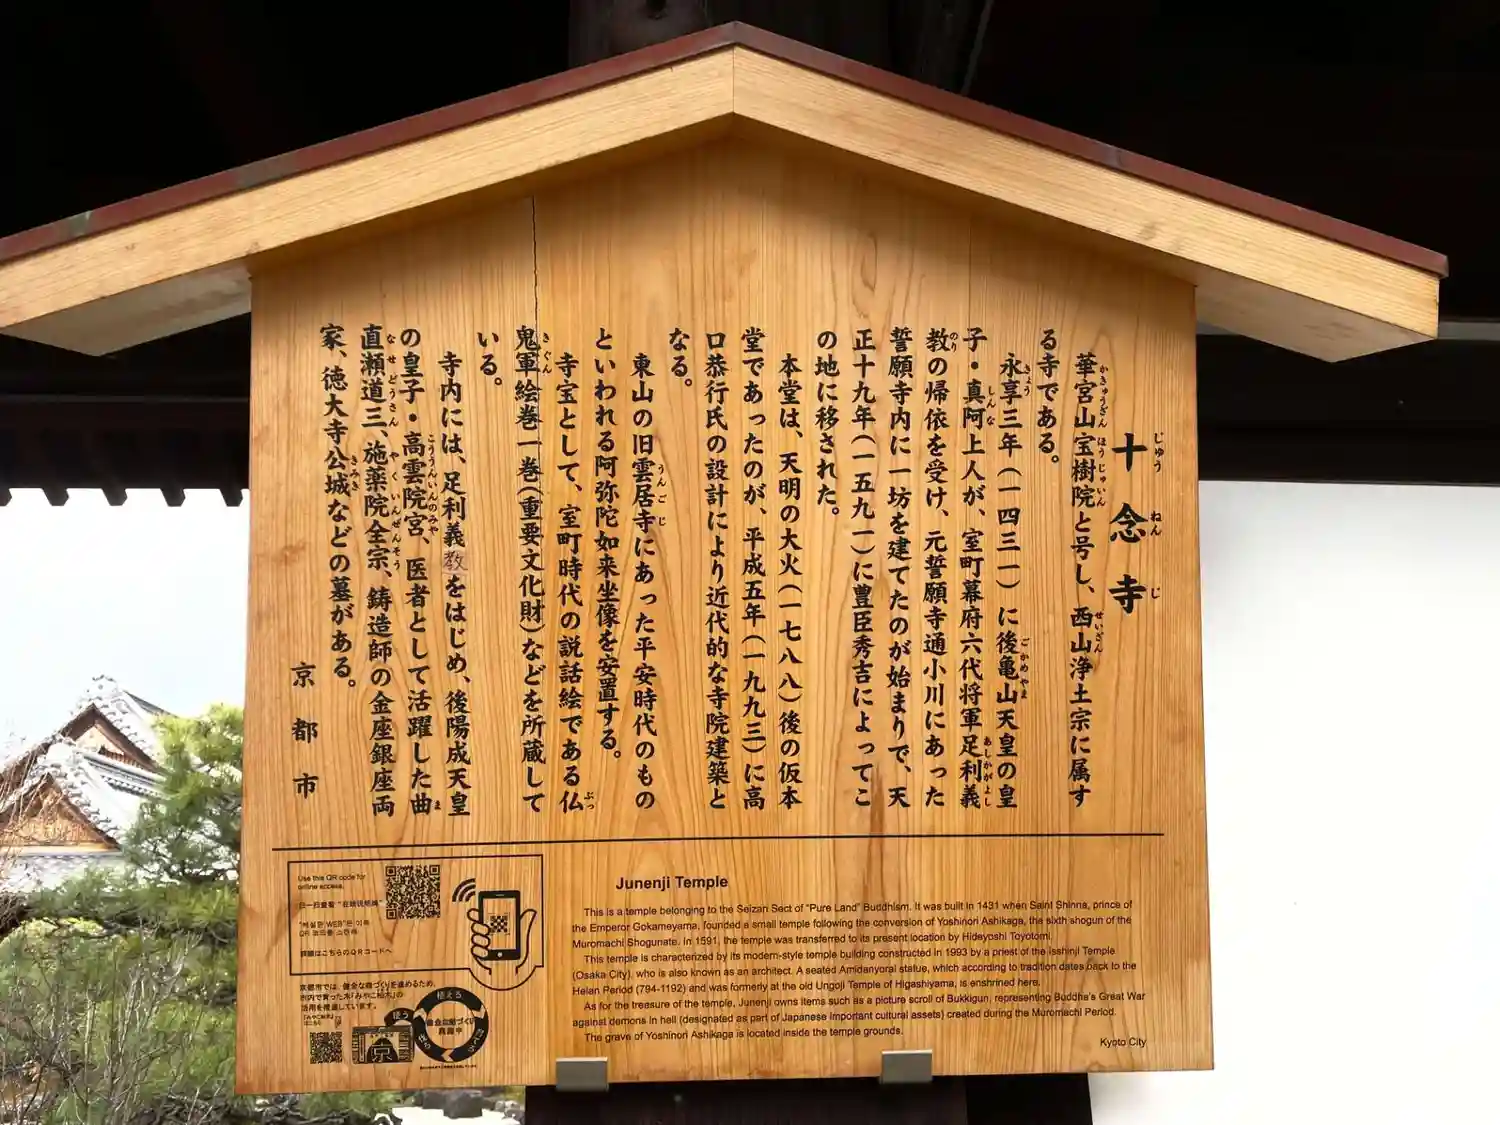 十念寺
じゅうねんじ
華宮山宝樹院と号し、西山浄土宗に属す
かきゅうざん ほうじゅいん せいざん
る寺である。
永享三年(一四三一)に後亀山天皇の皇
きょう ごかめやま
子・真阿上人が、室町幕府六代将軍足利義
しんな あしかがよし
教の帰依を受け、元誓願寺通小川にあった
のり
誓願寺内に一坊を建てたのが始まりで、天
正十九年(一五九一)に豊臣秀吉によってこ
の地に移された。
本堂は、天明の大火(一七八八)後の仮本
堂であったのが、平成五年(一九九三)に高
口恭行氏の設計により近代的な寺院建築と
なる。
東山の旧雲居寺にあった平安時代のもの
うんごじ
といわれる阿弥陀如来坐像を安置する。
寺宝として、室町時代の説話絵である仏
ぶっ
鬼軍絵巻一巻(重要文化財)などを所蔵して
きぐん
いる。
寺内には、足利義教をはじめ、後陽成天皇
の皇子・高雲院宮、医者として活躍した曲
こううんいんのみや ま
直瀬道三、施薬院全宗、鋳造師の金座銀座両
なせどうさん やくいんぜんそう
家、徳大寺公城などの墓がある。
きみき
京都市
Use this QR code for
online access.
扫一扫查看"在线说明牌"
詳細はこちらのQRコードへ
京都市では、健全な森づくりを進めるため、
市内で育った木「みやこ杣木」の
活用を推進しています。
Junenji Temple
This is a temple belonging to the Seizan Sect of "Pure Land" Buddhism. It was built in 1431 when Saint Shinna, prince of
the Emperor Gokameyama, founded a small temple following the conversion of Yoshinori Ashikaga, the sixth shogun of the
Muromachi Shogunate. In 1591, the temple was transferred to its present location by Hideyoshi Toyotomi.
This temple is characterized by its modern-style temple building constructed in 1993 by a priest of the Isshinji Temple
(Osaka City), who is also known as an architect. A seated Amidanyorai statue, which according to tradition dates back to the
Heian Period (794-1192) and was formerly at the old Ungoji Temple of Higashiyama, is enshrined here.
As for the treasure of the temple, Junenji owns items such as a picture scroll of Bukkigun, representing Buddha's Great War
against demons in hell (designated as part of Japanese important cultural assets) created during the Muromachi Period.
The grave of Yoshinori Ashikaga is located inside the temple grounds.
Kyoto City